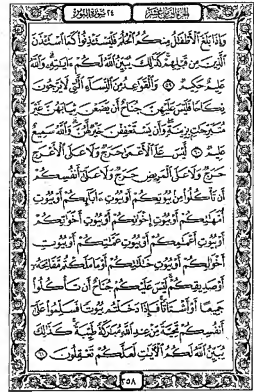 الجزء الثامن عشر ٢٤ سورة النور
وَإِذَا بَلَغَ ٱلْأَطْفَٰلُ مِنكُمُ ٱلْحُلُمَ فَلْيَسْتَـْٔذِنُوا۟ كَمَا ٱسْتَـْٔذَنَ
ٱلَّذِينَ مِن قَبْلِهِمْ كَذَٰلِكَ يُبَيِّنُ ٱللَّهُ لَكُمْ ءَايَٰتِهِۦ وَٱللَّهُ
عَلِيمٌ حَكِيمٌ ٥٩ وَٱلْقَوَٰعِدُ مِنَ ٱلنِّسَآءِ ٱلَّٰتِى لَا يَرْجُونَ
نِكَاحًا فَلَيْسَ عَلَيْهِنَّ جُنَاحٌ أَن يَضَعْنَ ثِيَابَهُنَّ غَيْرَ
مُتَبَرِّجَٰتٍۭ بِزِينَةٍ وَأَن يَسْتَعْفِفْنَ خَيْرٌ لَّهُنَّ وَٱللَّهُ سَمِيعٌ
عَلِيمٌ ٦٠ لَّيْسَ عَلَى ٱلْأَعْمَىٰ حَرَجٌ وَلَا عَلَى ٱلْأَعْرَجِ
حَرَجٌ وَلَا عَلَى ٱلْمَرِيضِ حَرَجٌ وَلَا عَلَىٰٓ أَنفُسِكُمْ
أَن تَأْكُلُوا۟ مِنۢ بُيُوتِكُمْ أَوْ بُيُوتِ ءَابَآئِكُمْ أَوْ بُيُوتِ
أُمَّهَٰتِكُمْ أَوْ بُيُوتِ إِخْوَٰنِكُمْ أَوْ بُيُوتِ أَخَوَٰتِكُمْ
أَوْ بُيُوتِ أَعْمَٰمِكُمْ أَوْ بُيُوتِ عَمَّٰتِكُمْ أَوْ بُيُوتِ
أَخْوَٰلِكُمْ أَوْ بُيُوتِ خَٰلَٰتِكُمْ أَوْ مَا مَلَكْتُم مَّفَاتِحَهُۥٓ
أَوْ صَدِيقِكُمْ لَيْسَ عَلَيْكُمْ جُنَاحٌ أَن تَأْكُلُوا۟
جَمِيعًا أَوْ أَشْتَاتًا فَإِذَا دَخَلْتُم بُيُوتًا فَسَلِّمُوا۟ عَلَىٰٓ
أَنفُسِكُمْ تَحِيَّةً مِّنْ عِندِ ٱللَّهِ مُبَٰرَكَةً طَيِّبَةً كَذَٰلِكَ
يُبَيِّنُ ٱللَّهُ لَكُمُ ٱلْءَايَٰتِ لَعَلَّكُمْ تَعْقِلُونَ ٦١
٣٥٨